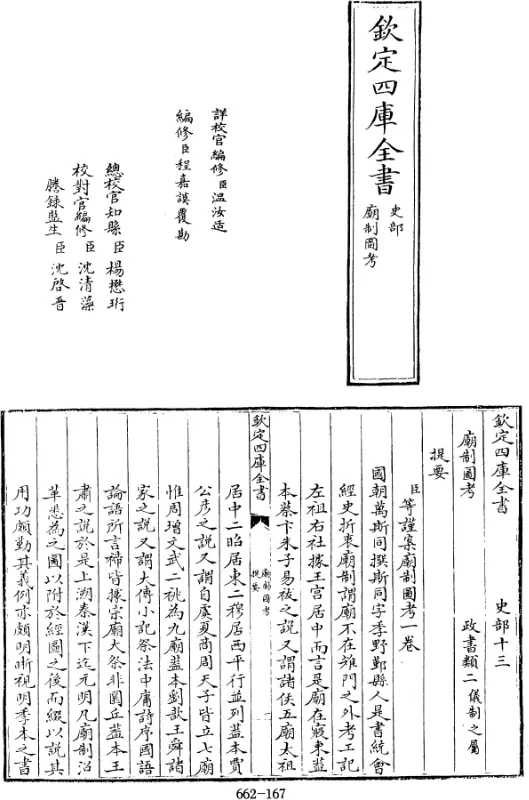 欽定四庫全書
史部
廟制圖考
詳校官編修臣温汝适
編修臣程嘉謨覆勘
總校官知縣臣楊懋珩
校對官編修臣沈清藻
謄錄監生臣沈啓晋
欽定四庫全書 史部十三
廟制圖考 政書類二儀制之屬
提要
臣等謹案廟制圖考一卷
國朝萬斯同撰斯同字季野鄞縣人是書統會
經史折衷廟制謂廟不在雉門之外考工記
左祖右社據王宫居中而言是廟在寢東蓋
本蔡卞朱子易祓之説又謂諸侯五廟太祖
欽定四庫全書 廟制圖考 提要 一
居中二昭居東二穆居西平行並列蓋本賈
公彦之説又謂自虞夏商周天子皆立七廟
惟周增文武二祧為九廟蓋本劉歆王舜諸
家之説又謂大傳小記祭法中庸詩序國語
論語所言禘皆據宗廟大祭非圜丘蓋本王
肅之説於是上溯秦漢下迄元明凡廟制沿
革悉為之圖以附於經圖之後而綴以説其
用功頗勤其義例亦頗明晰視明季本之書
662-167